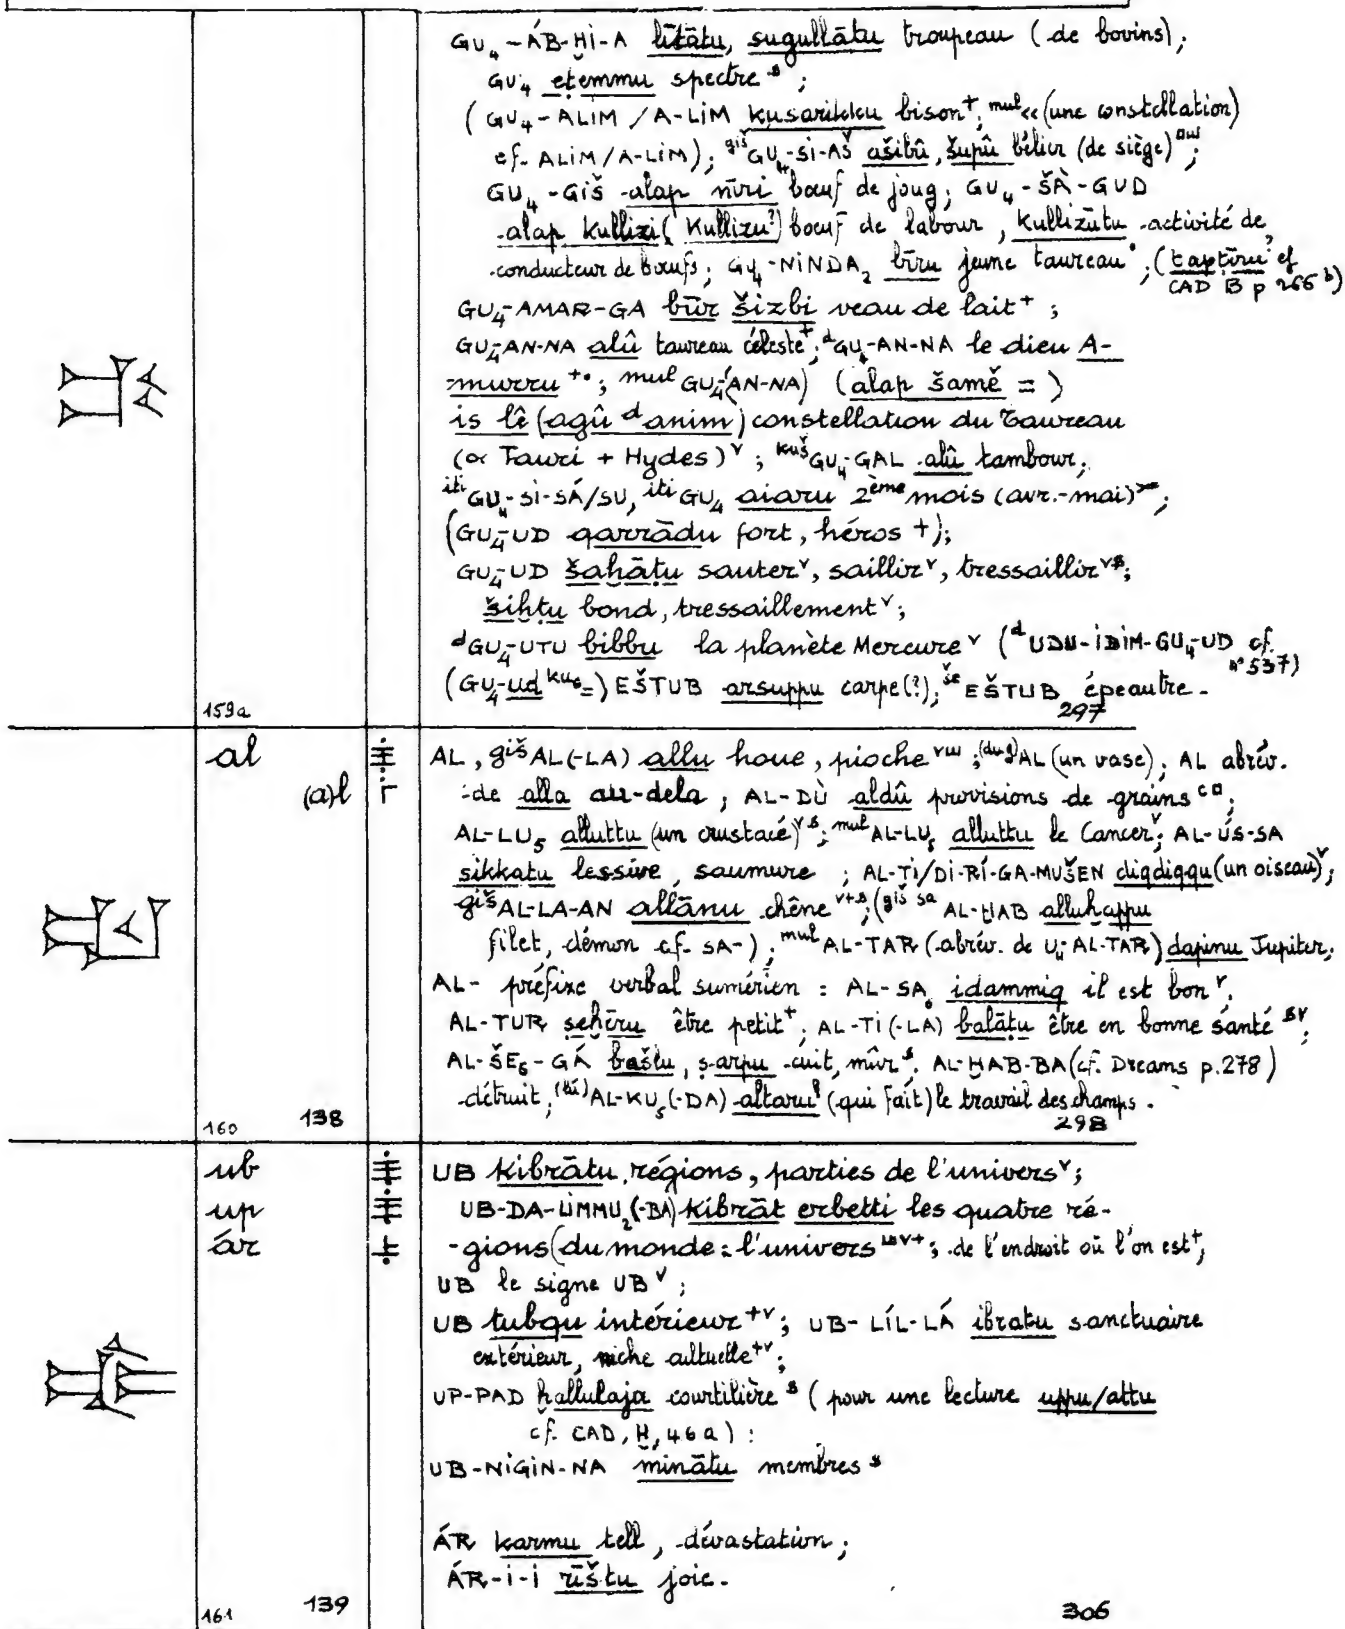 GU₄-ÁB-ḪI-A lītātu, sugullātu troupeau (de bovins);
GU₄ eṭemmu spectre ˢ;
(GU₄-ALIM / A-LIM kusarikku bison⁺, ᵐᵘˡ<< (une constellation)
cf. ALIM/A-LIM); ᵍⁱˢGU₄-SI-AŠ ašibû, šupû bélier (de siège);
GU₄-GIŠ alap nīri bœuf de joug; GU₄-ŠÀ-GUD
alap kullizi (kullizu?) bœuf de labour, kullizūtu activité de
conducteur de bœufs; GU₄-NINDA₂ bīru jeune taureau, (taptīru? cf
CAD B p 266 b)
GU₄-AMAR-GA būr šizbi veau de lait⁺;
GU₄-AN-NA alû taureau céleste⁺; ᵈGU₄-AN-NA le dieu A-
murru⁺•; mul GU₄(AN-NA) (alap šamê =)
is lê (agû ᵈanim) constellation du Taureau
(α Tauri + Hydes)ᵛ; ᵏᵘšGU₄-GAL alû tambour;
ⁱᵗⁱGU₄-SI-SÁ/SU, ⁱᵗⁱGU₄ aiaru 2ème mois (avr.-mai);
(GU₄-UD qarrādu fort, héros +);
GU₄-UD šaḫāṭu sauterᵛ, saillirᵛ, tressaillirᵛˢ;
šiḫṭu bond, tressaillementᵛ;
ᵈGU₄-UTU bibbu la planète Mercureᵛ (ᵈUDU-IDIM-GU₄-UD cf.
n° 537)
(GU₄-ud ᵏᵘ⁶ =) EŠTUB arsuppu carpe(?); ᶳᵉEŠTUB épeautre.
159a 297
al AL, ᵍⁱšAL(-LA) allu houe, pioche ᵛ; (dug)AL (un vase); AL abrév.
(a)l de alla au-dela; AL-DÙ aldû provisions de grains;
AL-LU₅ alluttu (un crustacé)ᵛˢ; ᵐᵘˡAL-LU₅ alluttu le Cancerᵛ; AL-ÚS-SA
sikkatu lessive, saumure; AL-TI/DI-RÍ-GA-MUŠEN diqdiqqu (un oiseau)ᵛ;
ᵍⁱšAL-LA-AN allānu chêneᵛ⁺ˢ; (ᵍⁱš ˢᵃAL-ḪAB alluḫappu
filet, démon cf. SA-); ᵐᵘˡAL-TAR (abrév. de U₄-AL-TAR) dapinu Jupiter;
AL- préfixe verbal sumérien : AL-SA₆ idammiq il est bonᵛ;
AL-TUR ṣeḫēru être petit⁺; AL-TI(-LA) balāṭu être en bonne santé ˢᵛ;
AL-ŠE₆-GÁ bašlu, ṣarpu cuit, mûrˢ; AL-ḪAB-BA (cf. Dreams p.278)
détruit; (lú)AL-KU₅(-DA) altaru? (qui fait) le travail des champs.
160 138 298
ub UB kibrātu régions, parties de l'universᵛ;
up UB-DA-LIMMU₂(-BA) kibrāt erbetti les quatre ré-
ár -gions (du monde : l'univers; de l'endroit où l'on est⁺;
UB le signe UBᵛ;
UB tubqu intérieur⁺ᵛ; UB-LÍL-LÁ ibratu sanctuaire
extérieur, niche cultuelle⁺ᵛ;
UP-PAD ḫallulaja courtilièreˢ (pour une lecture uppu/attu
cf. CAD, Ḫ, 46a) :
UB-NIGIN-NA minātu membresˢ
ÁR karmu tell, dévastation;
ÁR-I-I rīštu joie.
161 139 306